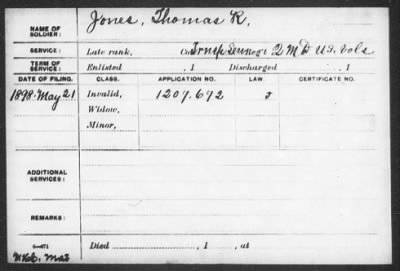 NAME OF SOLDIER: Jones, Thomas R.
SERVICE: Late rank, Co. Reg't 2 M D U.S. Vols
TERM OF SERVICE: Enlisted , 1 Discharged , 1
DATE OF FILING. CLASS. APPLICATION NO. LAW. CERTIFICATE NO.
1898 May 21 Invalid, 1207.692
Widow,
Minor,
ADDITIONAL SERVICES:
REMARKS:
Died , 1 , at